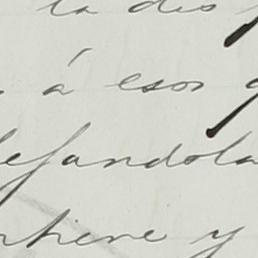 la dis
á esos
lejandola
ntiene y